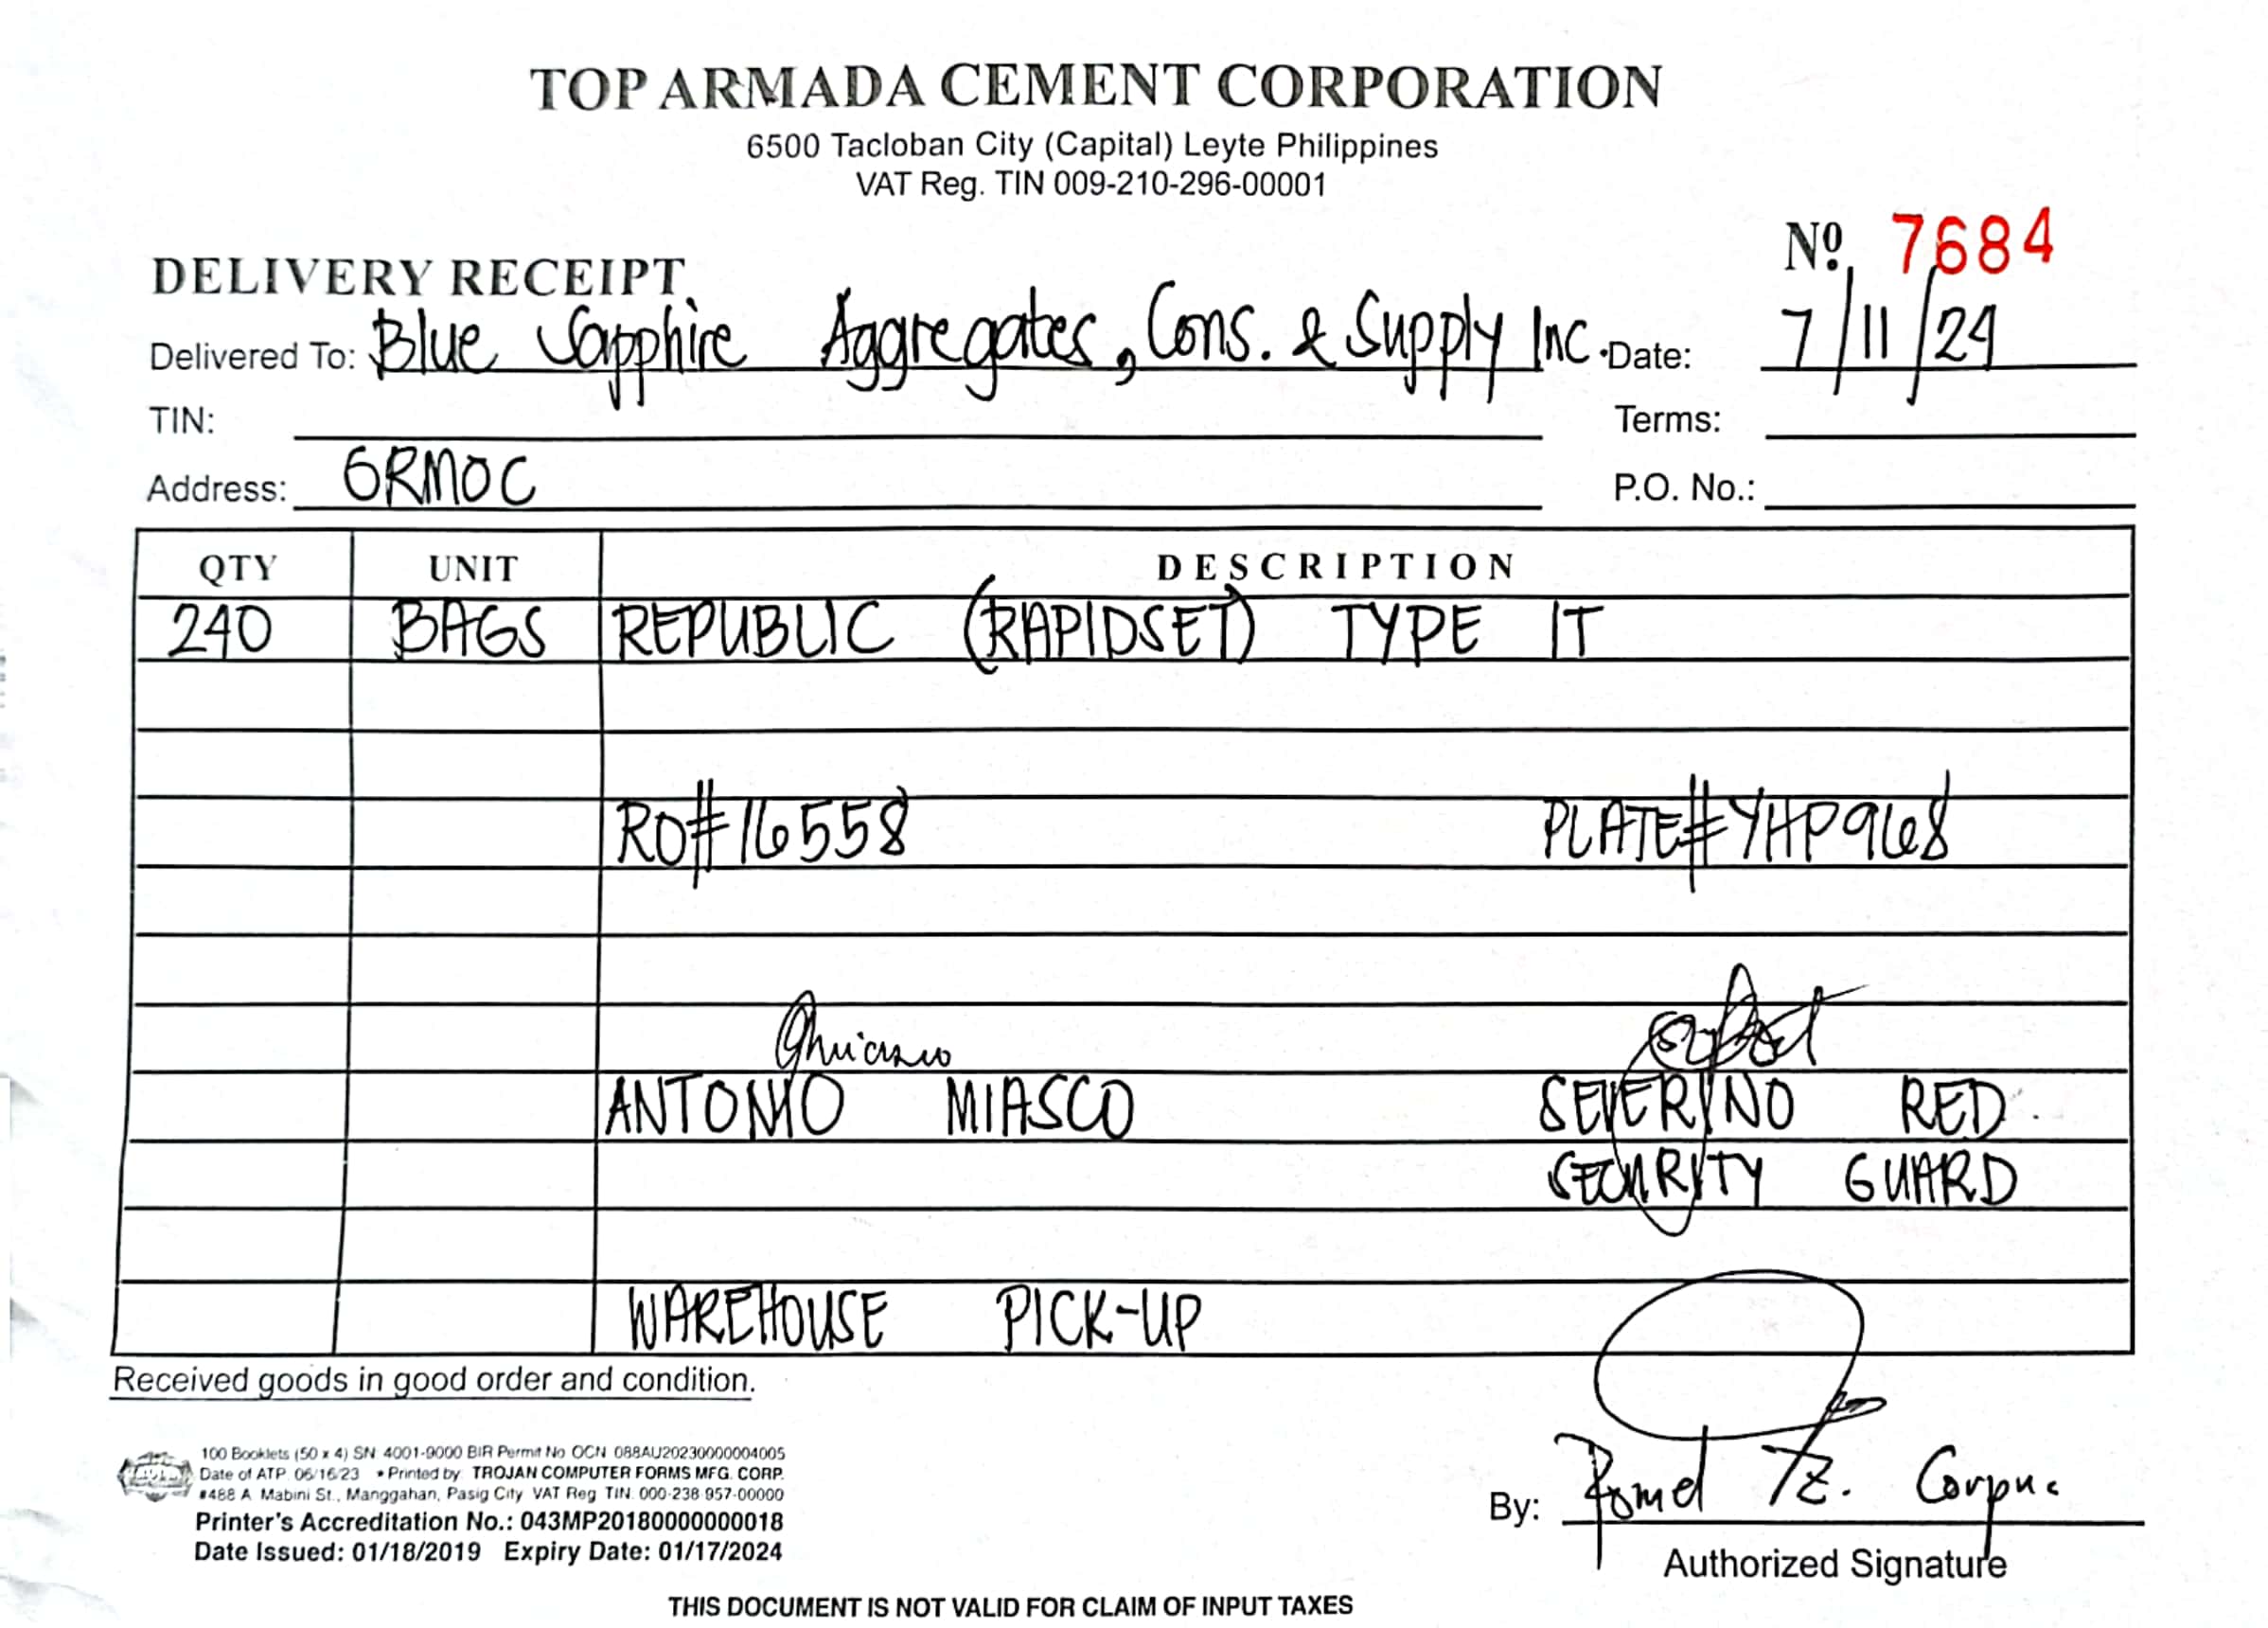 TOP ARMADA CEMENT CORPORATION
6500 Tacloban City (Capital) Leyte Philippines
VAT Reg. TIN 009-210-296-00001
Nº 7684
DELIVERY RECEIPT
Delivered To: Blue Sapphire Aggregates, Cons. & Supply Inc. Date: 7/11/24
TIN: Terms:
Address: ORMOC P.O. No.:
QTY UNIT DESCRIPTION
240 BAGS REPUBLIC (RAPIDSET) TYPE IT
RO#16558 PLATE#YHP968
ANTONIO MIASCO SEVERINO RED
SECURITY GUARD
WAREHOUSE PICK-UP
Received goods in good order and condition.
100 Booklets (50 x 4) SN 4001-9000 BIR Permit No OCN 088AU20230000004005
Date of ATP 06/16/23 • Printed by TROJAN COMPUTER FORMS MFG. CORP.
#488 A. Mabini St., Manggahan, Pasig City VAT Reg TIN 000-238 957-00000
Printer's Accreditation No.: 043MP20180000000018
Date Issued: 01/18/2019 Expiry Date: 01/17/2024
By: Romel Corpuz
Authorized Signature
THIS DOCUMENT IS NOT VALID FOR CLAIM OF INPUT TAXES